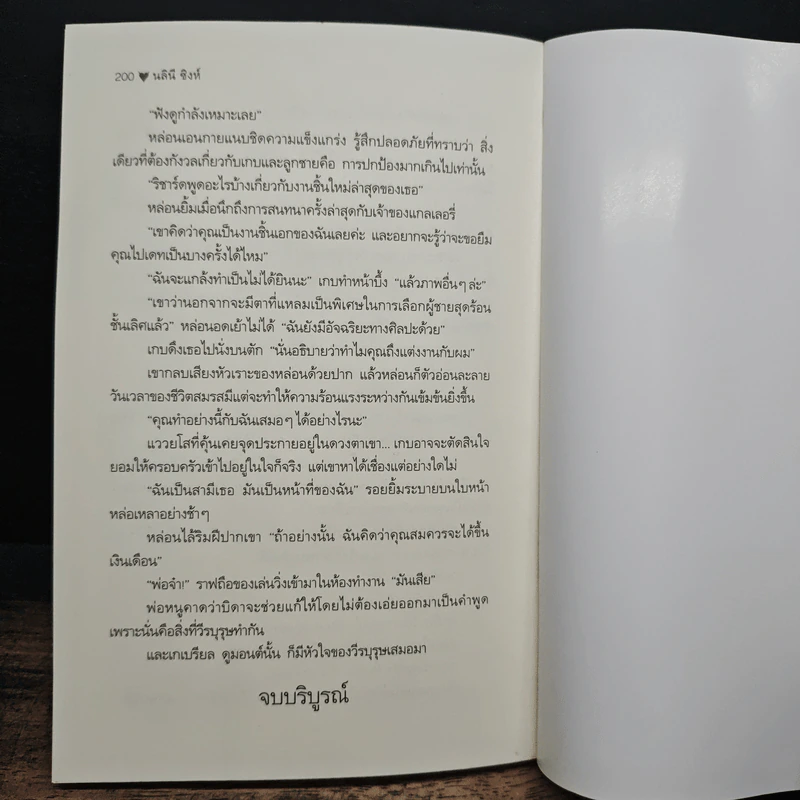 200 ♥ นลินี ซิงห์
“ฟังดูกำลังเหมาะเลย”
หล่อนเอนกายแนบชิดความแข็งแกร่ง รู้สึกปลอดภัยที่ทราบว่า สิ่ง
เดียวที่ต้องกังวลเกี่ยวกับเกบและลูกชายคือ การปกป้องมากเกินไปเท่านั้น
“ริชาร์ดพูดอะไรบ้างเกี่ยวกับงานชิ้นใหม่ล่าสุดของเธอ”
หล่อนยิ้มเมื่อนึกถึงการสนทนาครั้งล่าสุดกับเจ้าของแกลเลอรี่
“เขาคิดว่าคุณเป็นงานชิ้นเอกของฉันเลยค่ะ และอยากจะรู้ว่าจะขอยืม
คุณไปเดทเป็นบางครั้งได้ไหม”
“ฉันจะแกล้งทำเป็นไม่ได้ยินนะ” เกบทำหน้าบึ้ง “แล้วภาพอื่นๆ ล่ะ”
“เขาว่านอกจากจะมีตาที่แหลมเป็นพิเศษในการเลือกผู้ชายสุดร้อน
ชั้นเลิศแล้ว” หล่อนอดเย้าไม่ได้ “ฉันยังมีอัจฉริยะทางศิลปะด้วย”
เกบดึงเธอไปนั่งบนตัก “นั่นอธิบายว่าทำไมคุณถึงแต่งงานกับผม”
เขากลบเสียงหัวเราะของหล่อนด้วยปาก แล้วหล่อนก็ตัวอ่อนละลาย
วันเวลาของชีวิตสมรสมีแต่จะทำให้ความร้อนแรงระหว่างกันเข้มข้นยิ่งขึ้น
“คุณทำอย่างนี้กับฉันเสมอๆ ได้อย่างไรนะ”
แววยโสที่คุ้นเคยจุดประกายอยู่ในดวงตาเขา... เกบอาจจะตัดสินใจ
ยอมให้ครอบครัวเข้าไปอยู่ในใจก็จริง แต่เขาหาได้เชื่องแต่อย่างใดไม่
“ฉันเป็นสามีเธอ มันเป็นหน้าที่ของฉัน” รอยยิ้มระบายบนใบหน้า
หล่อเหลาอย่างช้าๆ
หล่อนไล้ริมฝีปากเขา “ถ้าอย่างนั้น ฉันคิดว่าคุณสมควรจะได้ขึ้น
เงินเดือน”
“พ่อจ๋า!” ราฟถือของเล่นวิ่งเข้ามาในห้องทำงาน “มันเสีย”
พ่อหนูคาดว่าบิดาจะช่วยแก้ให้โดยไม่ต้องเอ่ยออกมาเป็นคำพูด
เพราะนั่นคือสิ่งที่วีรบุรุษทำกัน
และเกเบรียล ดูมอนต์นั้น ก็มีหัวใจของวีรบุรุษเสมอมา
จบบริบูรณ์